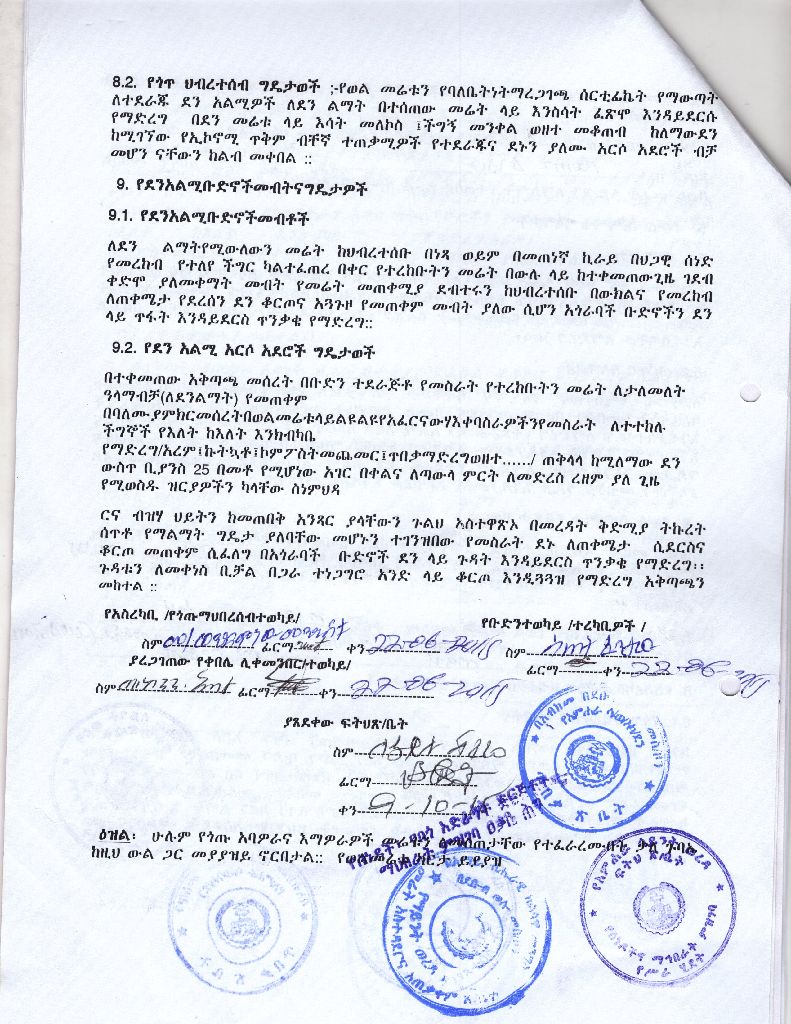 8.2. የጎጥ ህብረተሰብ ግዴታወች ;-የወል መሬቱን የባለቤትነትማረጋገጫ ሰርቲፊኬት የማውጣት
ለተደራጁ ደን አልሚዎች ለደን ልማት በተሰጠው መሬት ላይ እንስሳት ፈጽሞ እንዳይደርሱ
የማድረግ በደን መሬቱ ላይ እሳት መለኮስ ፤ችግኝ መንቀል ወዘተ መቆጠብ ከለማውደን
ከሚገኘው የኢኮኖሚ ጥቅም ብቸኛ ተጠቃሚዎች የተደራጁና ደኑን ያለሙ አርሶ አደሮች ብቻ
መሆን ናቸውን ከልብ መቀበል ፡፡
9. የደንአልሚቡድኖችመብትናግዴታዎች
9.1. የደንአልሚቡድኖችመብቶች
ለደን ልማትየሚውለውን መሬት ከህብረተሰቡ በነጻ ወይም በመጠነኛ ኪራይ በህጋዊ ሰነድ
የመረከብ የተለየ ችግር ካልተፈጠረ በቀር የተረከቡትን መሬት በውሉ ላይ ከተቀመጠውጊዜ ገደብ
ቀድሞ ያለመቀማት መብት የመሬት መጠቀሚያ ደብተሩን ከህብረተሰቡ በውክልና የመረከብ
ለጠቀሜታ የደረሰን ደን ቆርጦና አጓጉዞ የመጠቀም መብት ያለው ሲሆን አጎራባች ቡድኖችን ደን
ላይ ጥፋት እንዳይደርስ ጥንቃቄ የማድረግ፡፡
9.2. የደን አልሚ አርሶ አደሮች ግዴታወች
በተቀመጠው አቅጣጫ መሰረት በቡድን ተደራጅቶ የመስራት የተረከቡትን መሬት ለታለመለት
ዓላማብቻ(ለደንልማት) የመጠቀም
በባለሙያምክርመሰረትበወልመሬቱላይልዩልዩየአፈርናውሃእቀባስራዎችንየመስራት ለተተከሉ
ችግኞች የእለት ከእለት እንክብካቤ
የማድረግ/አረም፤ኩትኳቶ፤ኮምፖስትመጨመር፤ጥበቃማድረግወዘተ....../ ጠቅላላ ከሚለማው ደን
ውስጥ ቢያንስ 25 በመቶ የሚሆነው አገር በቀልና ለጣውላ ምርት ለመድረስ ረዘም ያለ ጊዜ
የሚወስዱ ዝርያዎችን ካላቸው ስነምህዳ
ርና ብዝሃ ህይትን ከመጠበቅ አንጻር ያላቸውን ጉልህ አስተዋጽኦ በመረዳት ቅድሚያ ትኩረት
ሰጥቶ የማልማት ግዴታ ያለባቸው መሆኑን ተገንዝበው የመስራት ደኑ ለጠቀሜታ ሲደርስና
ቆርጦ መጠቀም ሲፈለግ በአጎራባች ቡድኖች ደን ላይ ጉዳት እንዳይደርስ ጥንቃቄ የማድረግ፡፡
ጉዳቱን ለመቀነስ ቢቻል በጋራ ተነጋግሮ አንድ ላይ ቆርጦ እንዲጓጓዝ የማድረግ አቅጣጫን
መከተል ፡፡
የአስረካቢ /የጎጡማህበረሰብተወካይ/ የቡድንተወካይ /ተረካቢዎች /
ስም ፊርማ ቀን 22-06-2015 ስም
ያረጋገጠው የቀበሌ ሊቀመንበር/ተወካይ/ ፊርማ ቀን 22-06-2015
ስም ፊርማ ቀን 22-06-2015
ያጸደቀው ፍትህጽ/ቤት
ስም
ፊርማ
ቀን 9-10-15
ዕዝል፡ ሁሉም የጎጡ አባዎራና እማዎራዎች መሬቱን የተፈራረሙበት ቃለ ጉባኤ
ከዚህ ውል ጋር መያያዝይ ኖርበታል፡፡ ይያያዝ